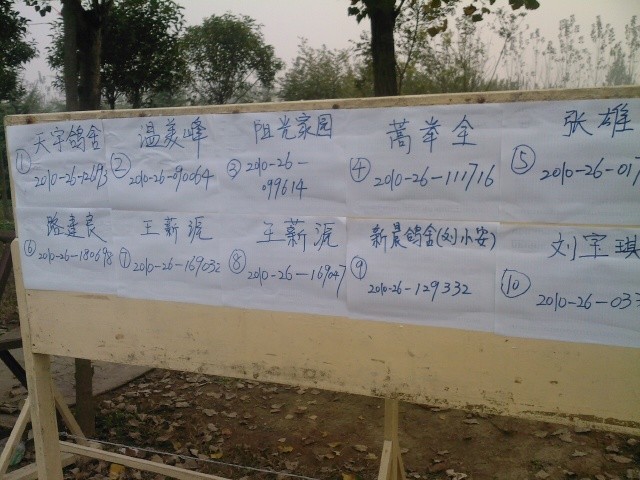 ① 天宇鸽舍
2010-26-12693
② 温美峰
2010-26-090064
③ 阻光家园
2010-26-
099614
④ 蒿举全
2010-26-111716
⑤ 张雄
2010-26-017
⑥ 路建良
2010-26-180698
⑦ 王薪淲
2010-26-169032
⑧ 王薪淲
2010-26-169047
⑨ 新晨鸽舍(刘小安)
2010-26-129332
⑩ 刘宝琪
2010-26-033